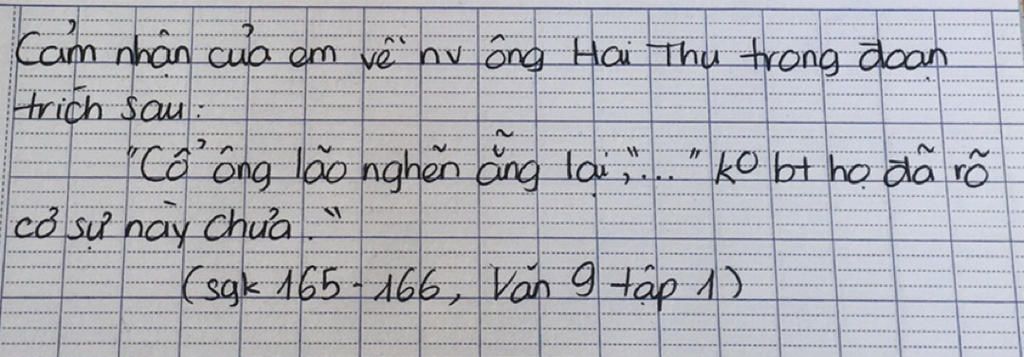 Cảm nhận của em về nv ông Hai Thu trong đoạn
trích sau:
"Cổ ông lão nghẽn ẵng lại,"..." ko bt họ đã rõ
cở sự này chưa."
(sgk 165-166, Văn 9 tập 1)